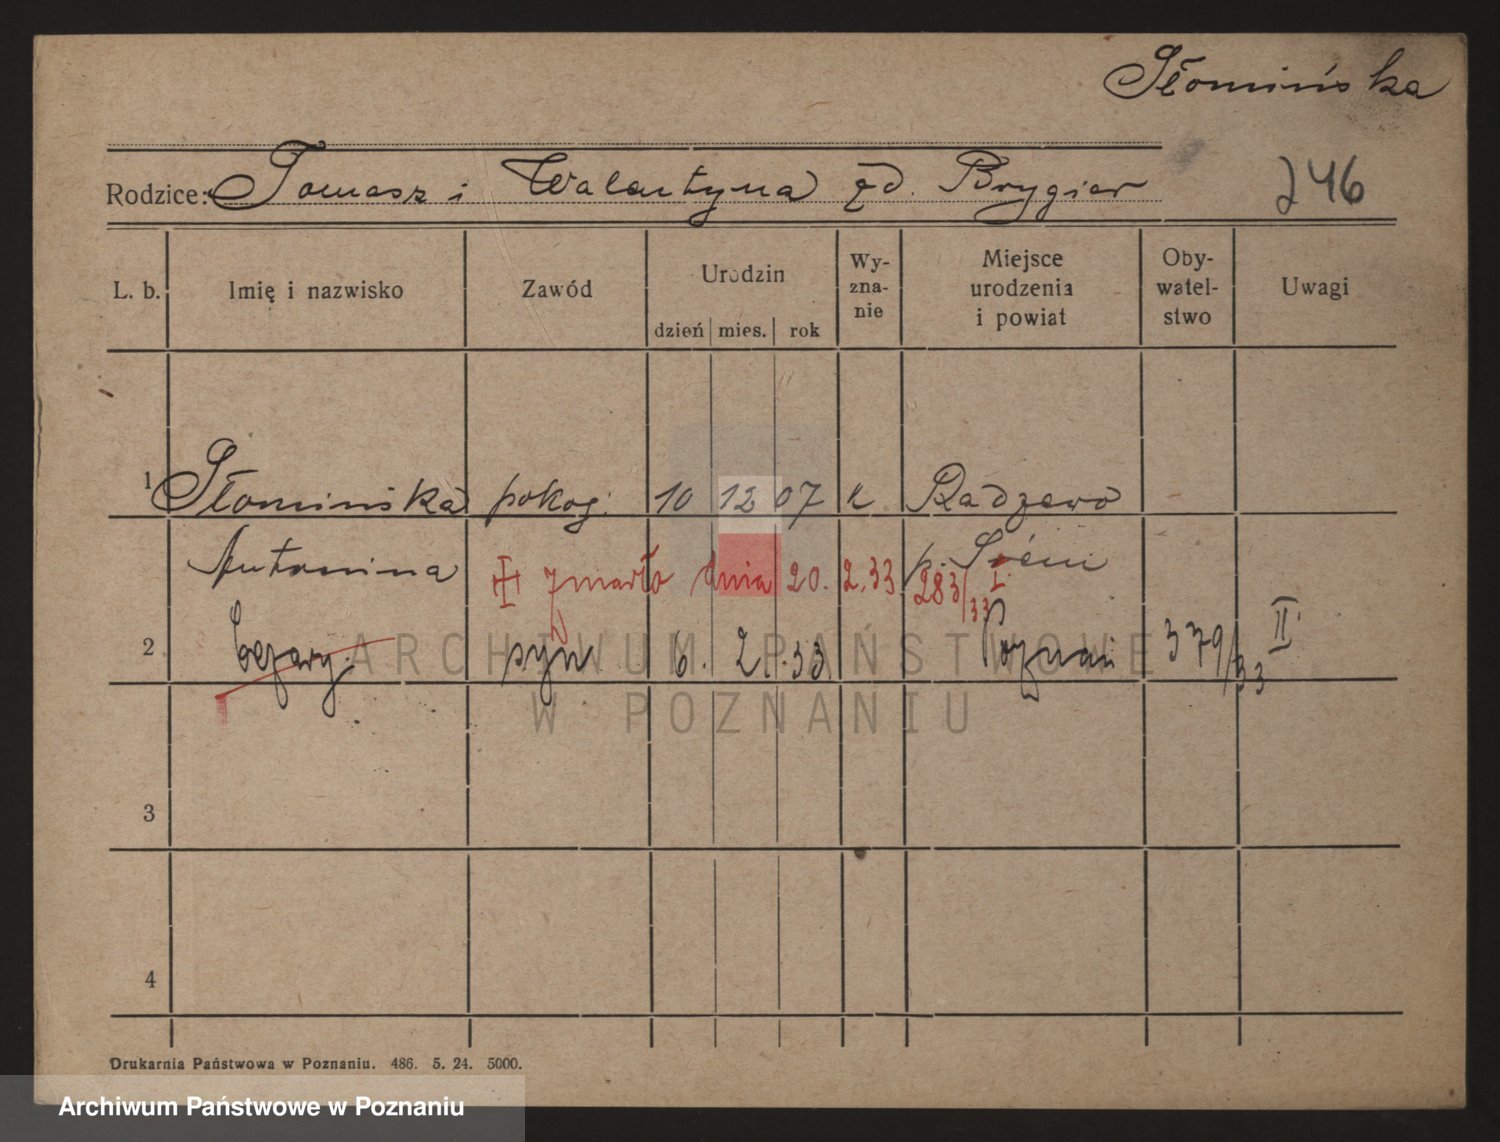 Słomińska
Rodzice: Tomasz i Walentyna zd. Brygier
246
L. b. Imię i nazwisko Zawód Urodzin dzień mies. rok Wy-zna-nie Miejsce urodzenia i powiat Oby-watel-stwo Uwagi
1 Słomińska pokoj. 10 12 07 k Radzewo
Antonina p. Śrem
zmarło dnia 20. 2. 33. 283/33 I.
2 Cezary syn 6. 2. 33 Poznań 379/33 II
ARCHIWUM PAŃSTWOWE
W POZNANIU
3
4
Drukarnia Państwowa w Poznaniu. 486. 5. 24. 5000.
Archiwum Państwowe w Poznaniu